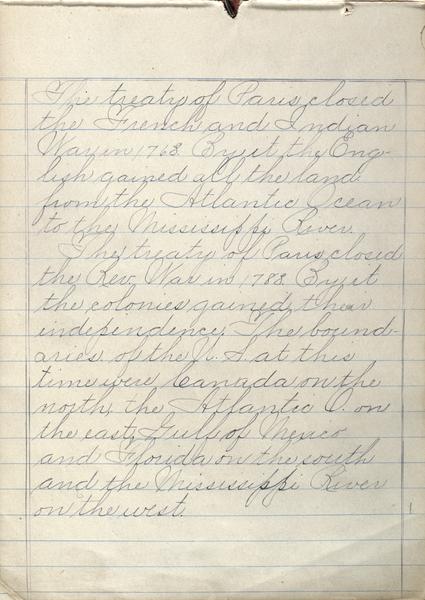 The treaty of Paris closed
the French and Indian
War in 1763. By it the Eng-
lish gained all the land
from the Atlantic Ocean
to the Mississippi River.
The treaty of Paris closed
the Rev. War in 1783. By it
the colonies gained their
independence. The bound-
aries of the U. S. at this
time were Canada on the
north, the Atlantic O. on
the east, Gulf of Mexico
and Florida on the south
and the Mississippi River
on the west.